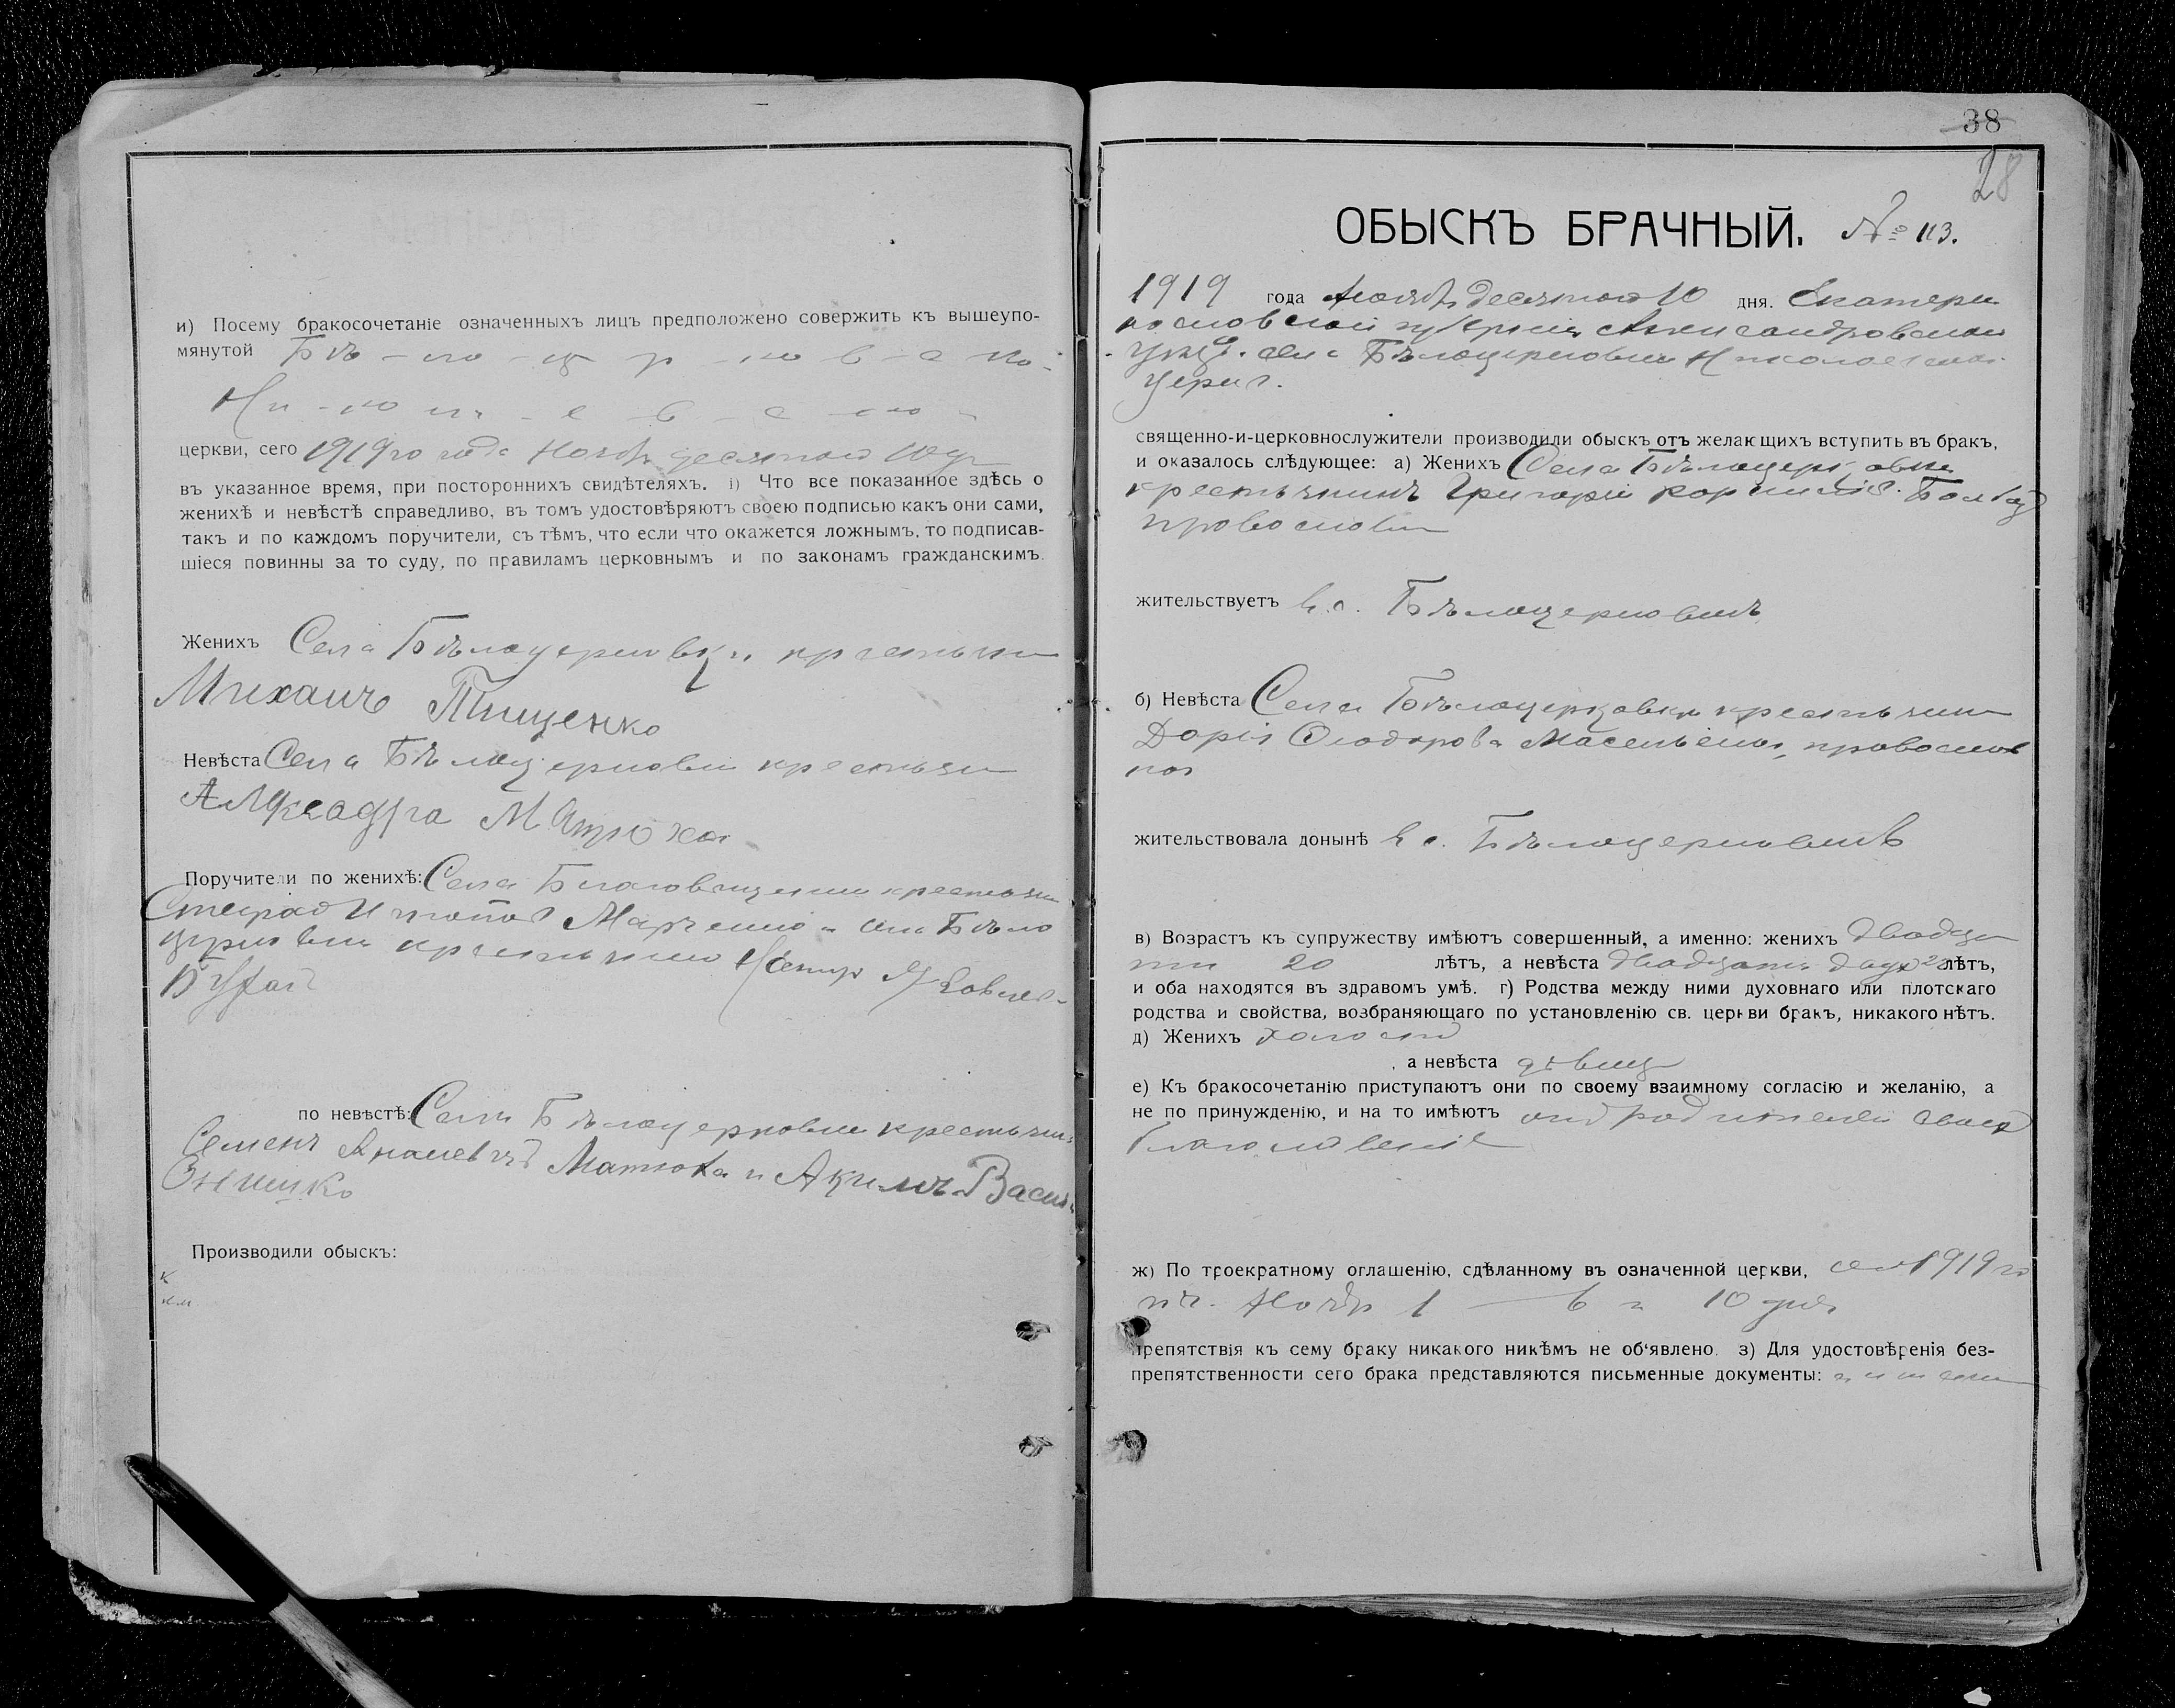 и) Посему бракосочетаніе означенныхъ лицъ предположено совержить къ вышеупо-
мянутой Бѣ-ло-ц р-ко в-с ко-
Ни-ко - е - в - с - ко
церкви, сего 1919го года Ноябр десятого 10 д
въ указанное время, при постороннихъ свидѣтеляхъ. і) Что все показанное здѣсь о
женихѣ и невѣстѣ справедливо, въ томъ удостовѣряютъ своею подписью какъ они сами,
такъ и по каждомъ поручители, съ тѣмъ, что если что окажется ложнымъ, то подписав-
шіеся повинны за то суду, по правиламъ церковнымъ и по законамъ гражданскимъ.
Женихъ Села Бѣлоцерковки крестьян
Михаилъ Тищенко
Невѣста Села Бѣлоцерковки крестьян
Матюха
Поручители по женихѣ: Села Благовѣщенки крестьян
Марченко и села Бѣло
церковки крестьянин Яковлев
Бугай
по невѣстѣ: Села Бѣлоцерковки крестьян
Семенъ Матюха и Акимъ Васил
Онищко
Производили обыскъ:
38
28
ОБЫСКЪ БРАЧНЫЙ. № 113.
1919 года Ноября десятого 10 дня. Екатери
нославской губерніи Александровского
уѣзд. села Бѣлоцерковки Николаевской
церкв.
священно-и-церковнослужители производили обыскъ отъ желающихъ вступить въ бракъ,
и оказалось слѣдующее: а) Женихъ Села Бѣлоцерковки
крестьянинъ Григорій Корнилів.
православн
жительствуетъ в с. Бѣлоцерковкѣ
б) Невѣста Села Бѣлоцерковки крестьян
Дарія Ѳеодорова православ
ная
жительствовала донынѣ в с. Бѣлоцерковкѣ
в) Возрастъ къ супружеству имѣютъ совершенный, а именно: женихъ двадца
ти 20 лѣтъ, а невѣста двадцати двух 22 лѣтъ,
и оба находятся въ здравомъ умѣ. г) Родства между ними духовнаго или плотскаго
родства и свойства, возбраняющаго по установленію св. церкви бракъ, никакого нѣтъ.
д) Женихъ холостъ
, а невѣста дѣвица
е) Къ бракосочетанію приступаютъ они по своему взаимному согласію и желанію, а
не по принужденію, и на то имѣютъ от родителей своих
благословеніе
ж) По троекратному оглашенію, сдѣланному въ означенной церкви, сего 1919 го
Ноябр 1 — 6 и 10 дня
препятствія къ сему браку никакого никѣмъ не об‘явлено. з) Для удостовѣренія без-
препятственности сего брака представляются письменные документы: